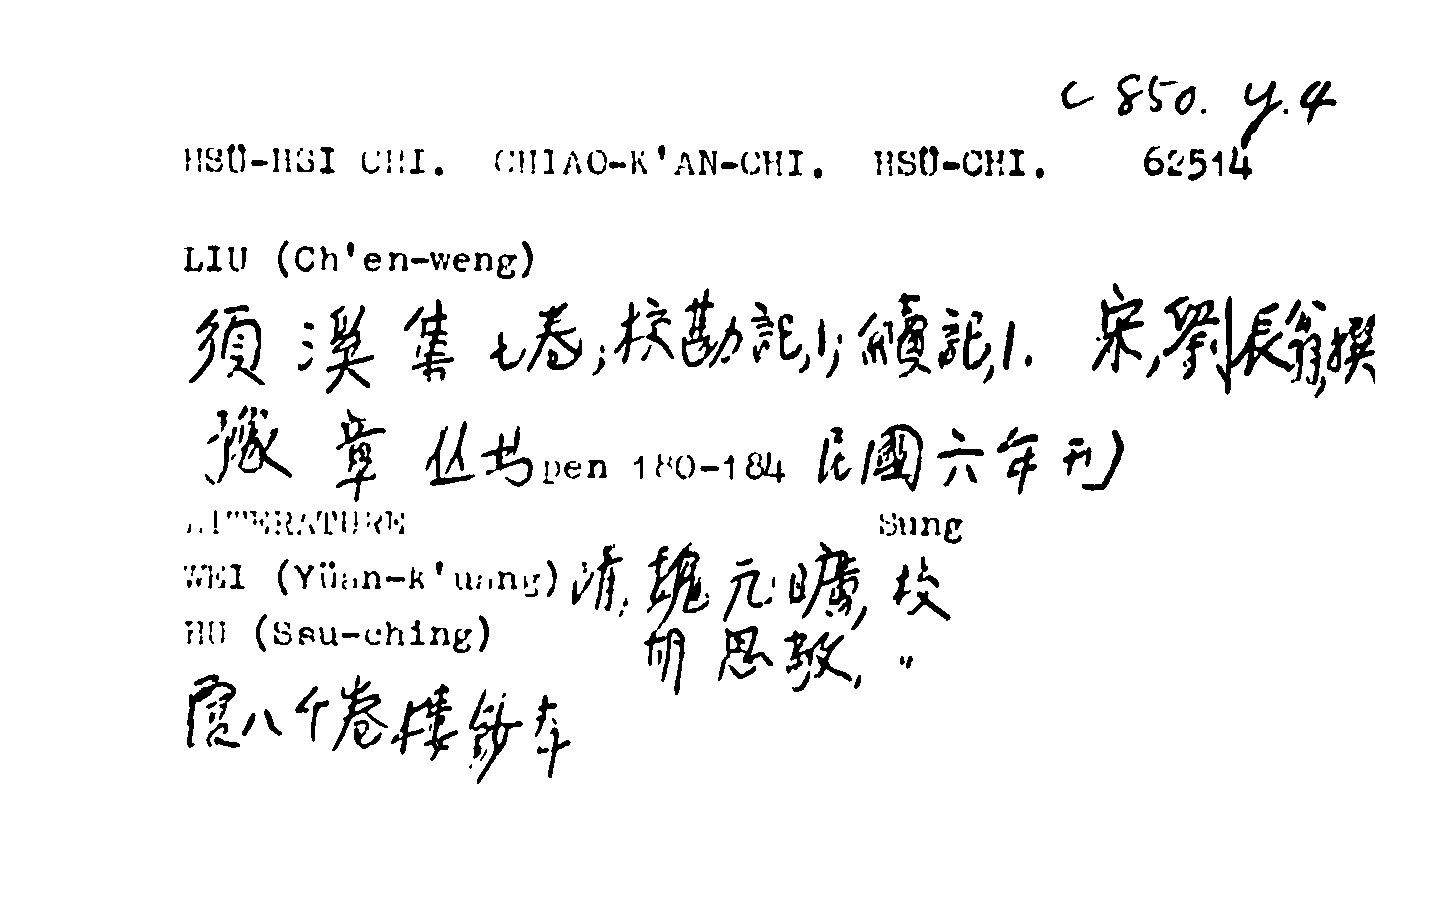 C 850. y.4
HSÜ-HSI CHI. CHIAO-K'AN-CHI. HSÜ-CHI. 62514
LIU (Ch'en-weng)
須溪集七卷;校勘記,1;續記,1. 宋,劉辰翁,撰
豫章丛书pen 180-184 民國六年刊)
LITERATURE Sung
WEI (Yüan-k'uang) 清,魏元曠,校
HU (Ssu-ching) 胡思敬, "
八千卷樓鈔本